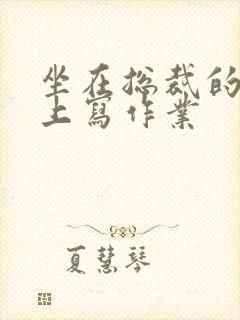 坐在总裁的
上寫作業
夏慧琴